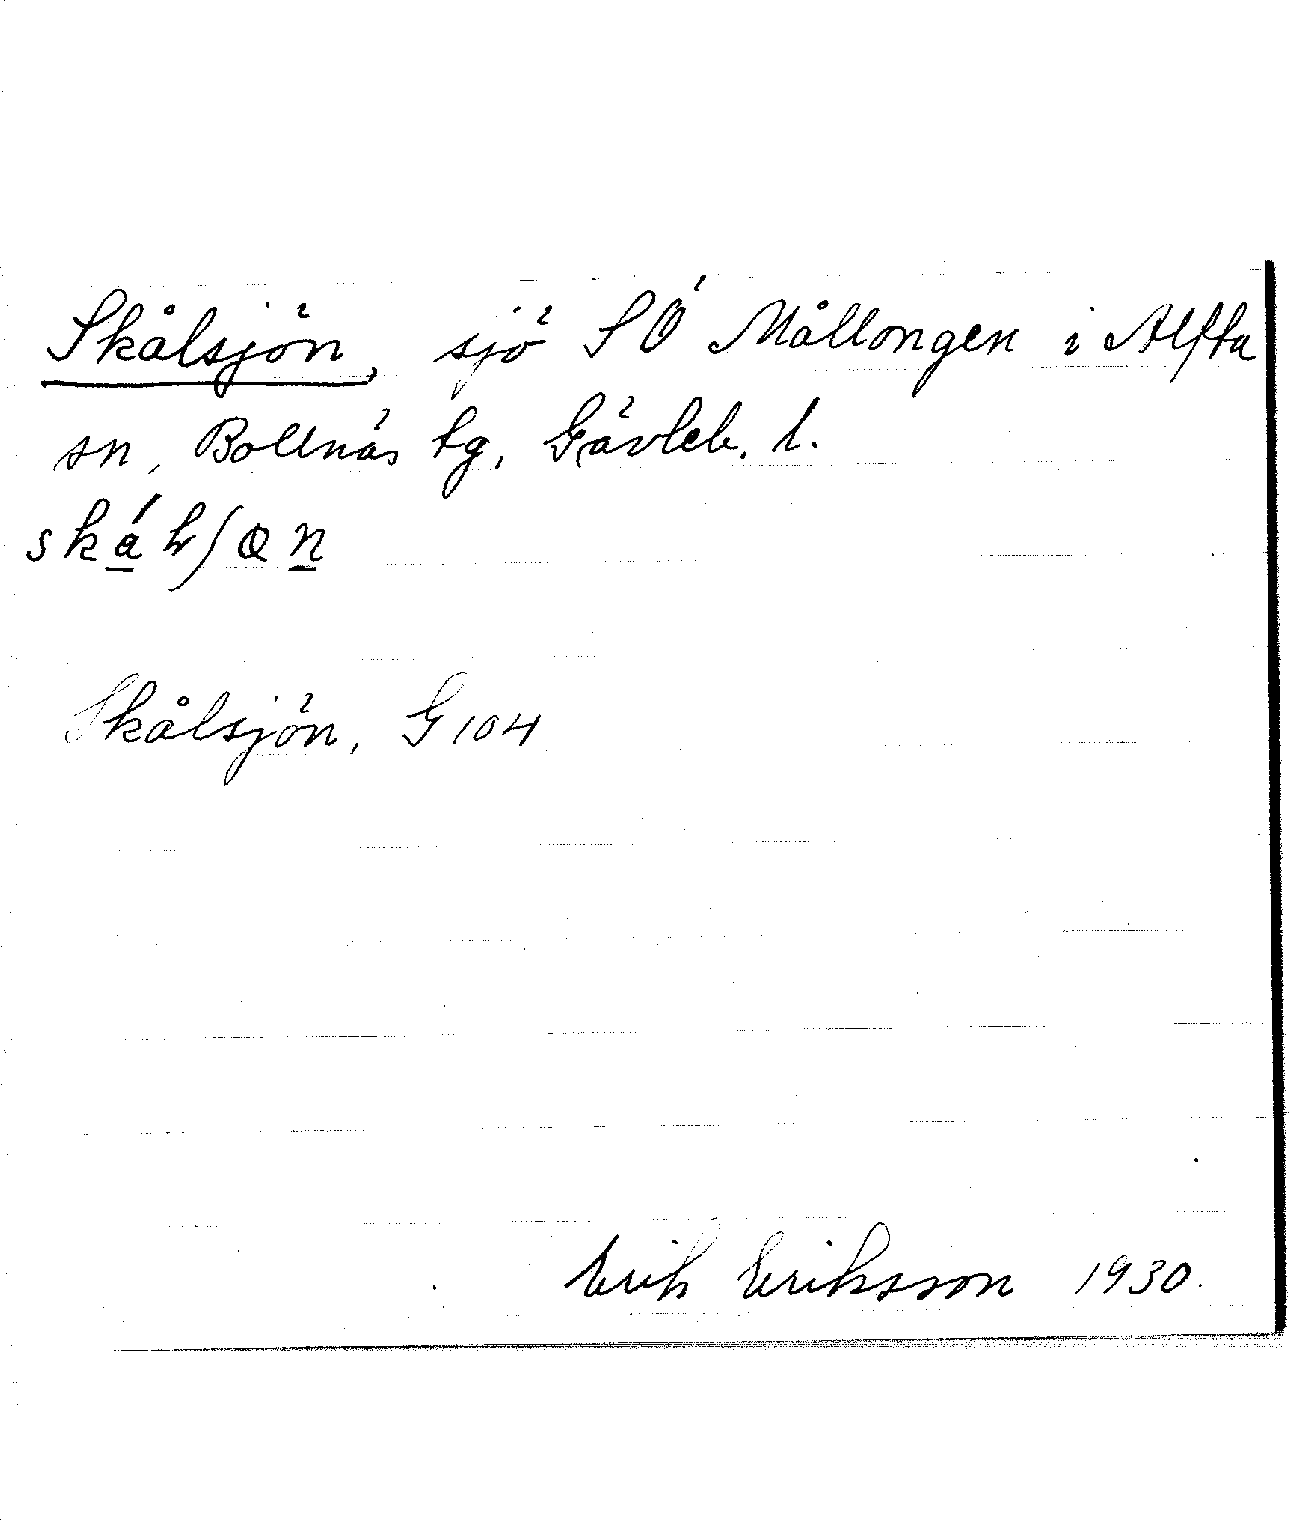 Skålsjön, sjö SÖ Mållongen i Alfta
sn, Bollnäs tg, Gävleb. l.
Skålsjön, G 104
Erik Eriksson 1930.